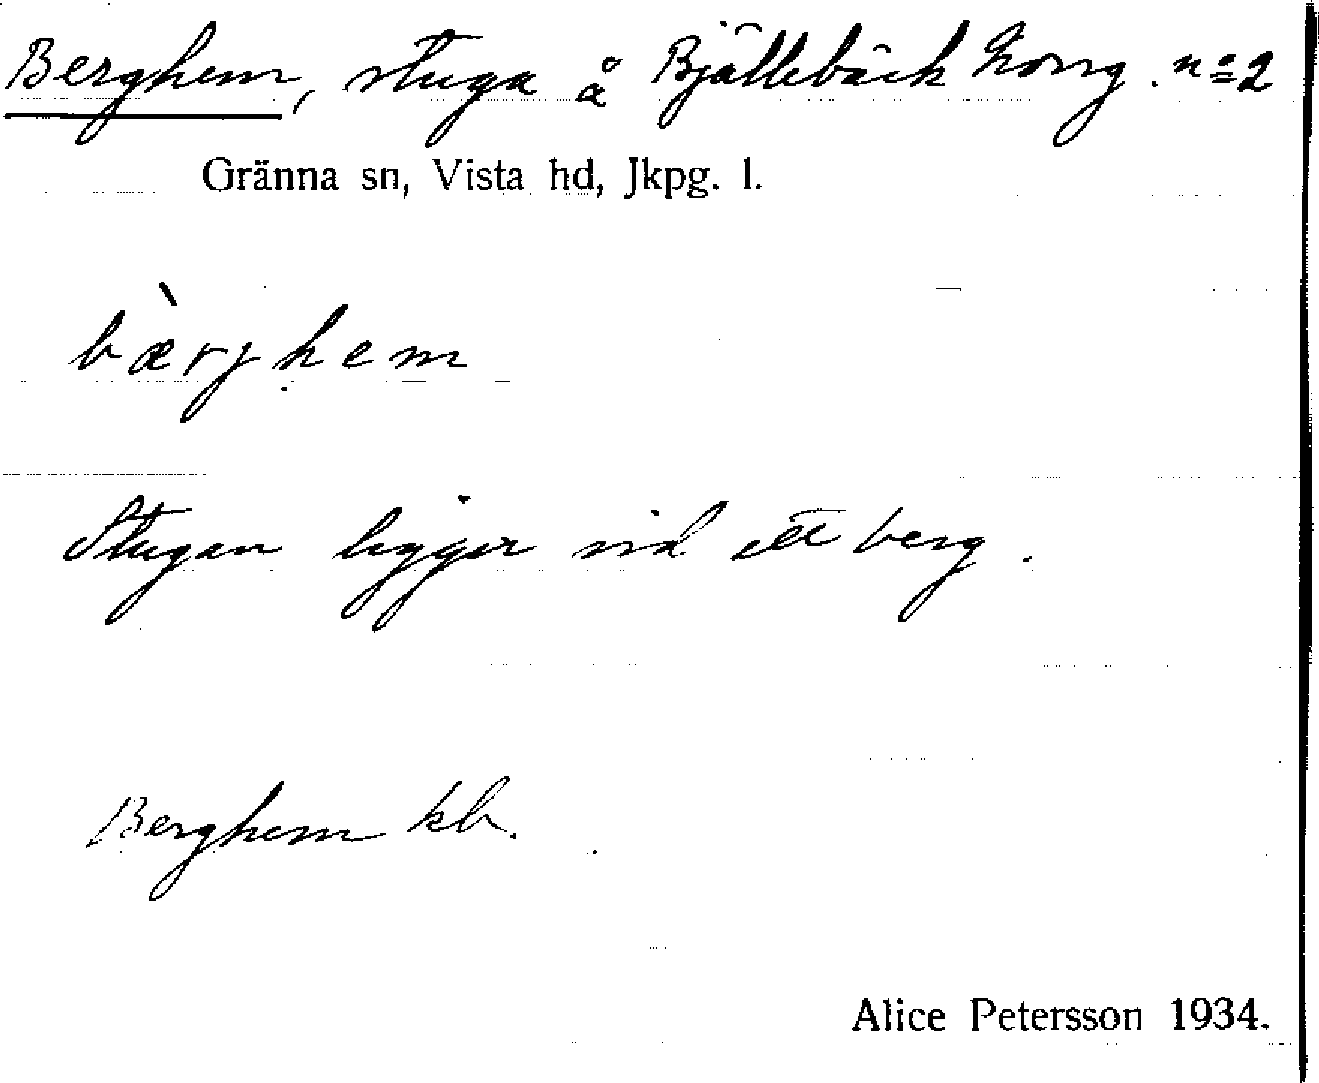 Berghem, stuga å Bjällebäck Norrg. nº 2
Gränna sn, Vista hd, Jkpg. l.
bæ̀rjhem
Stugan ligger vid ett berg.
Berghem kb.
Alice Petersson 1934.